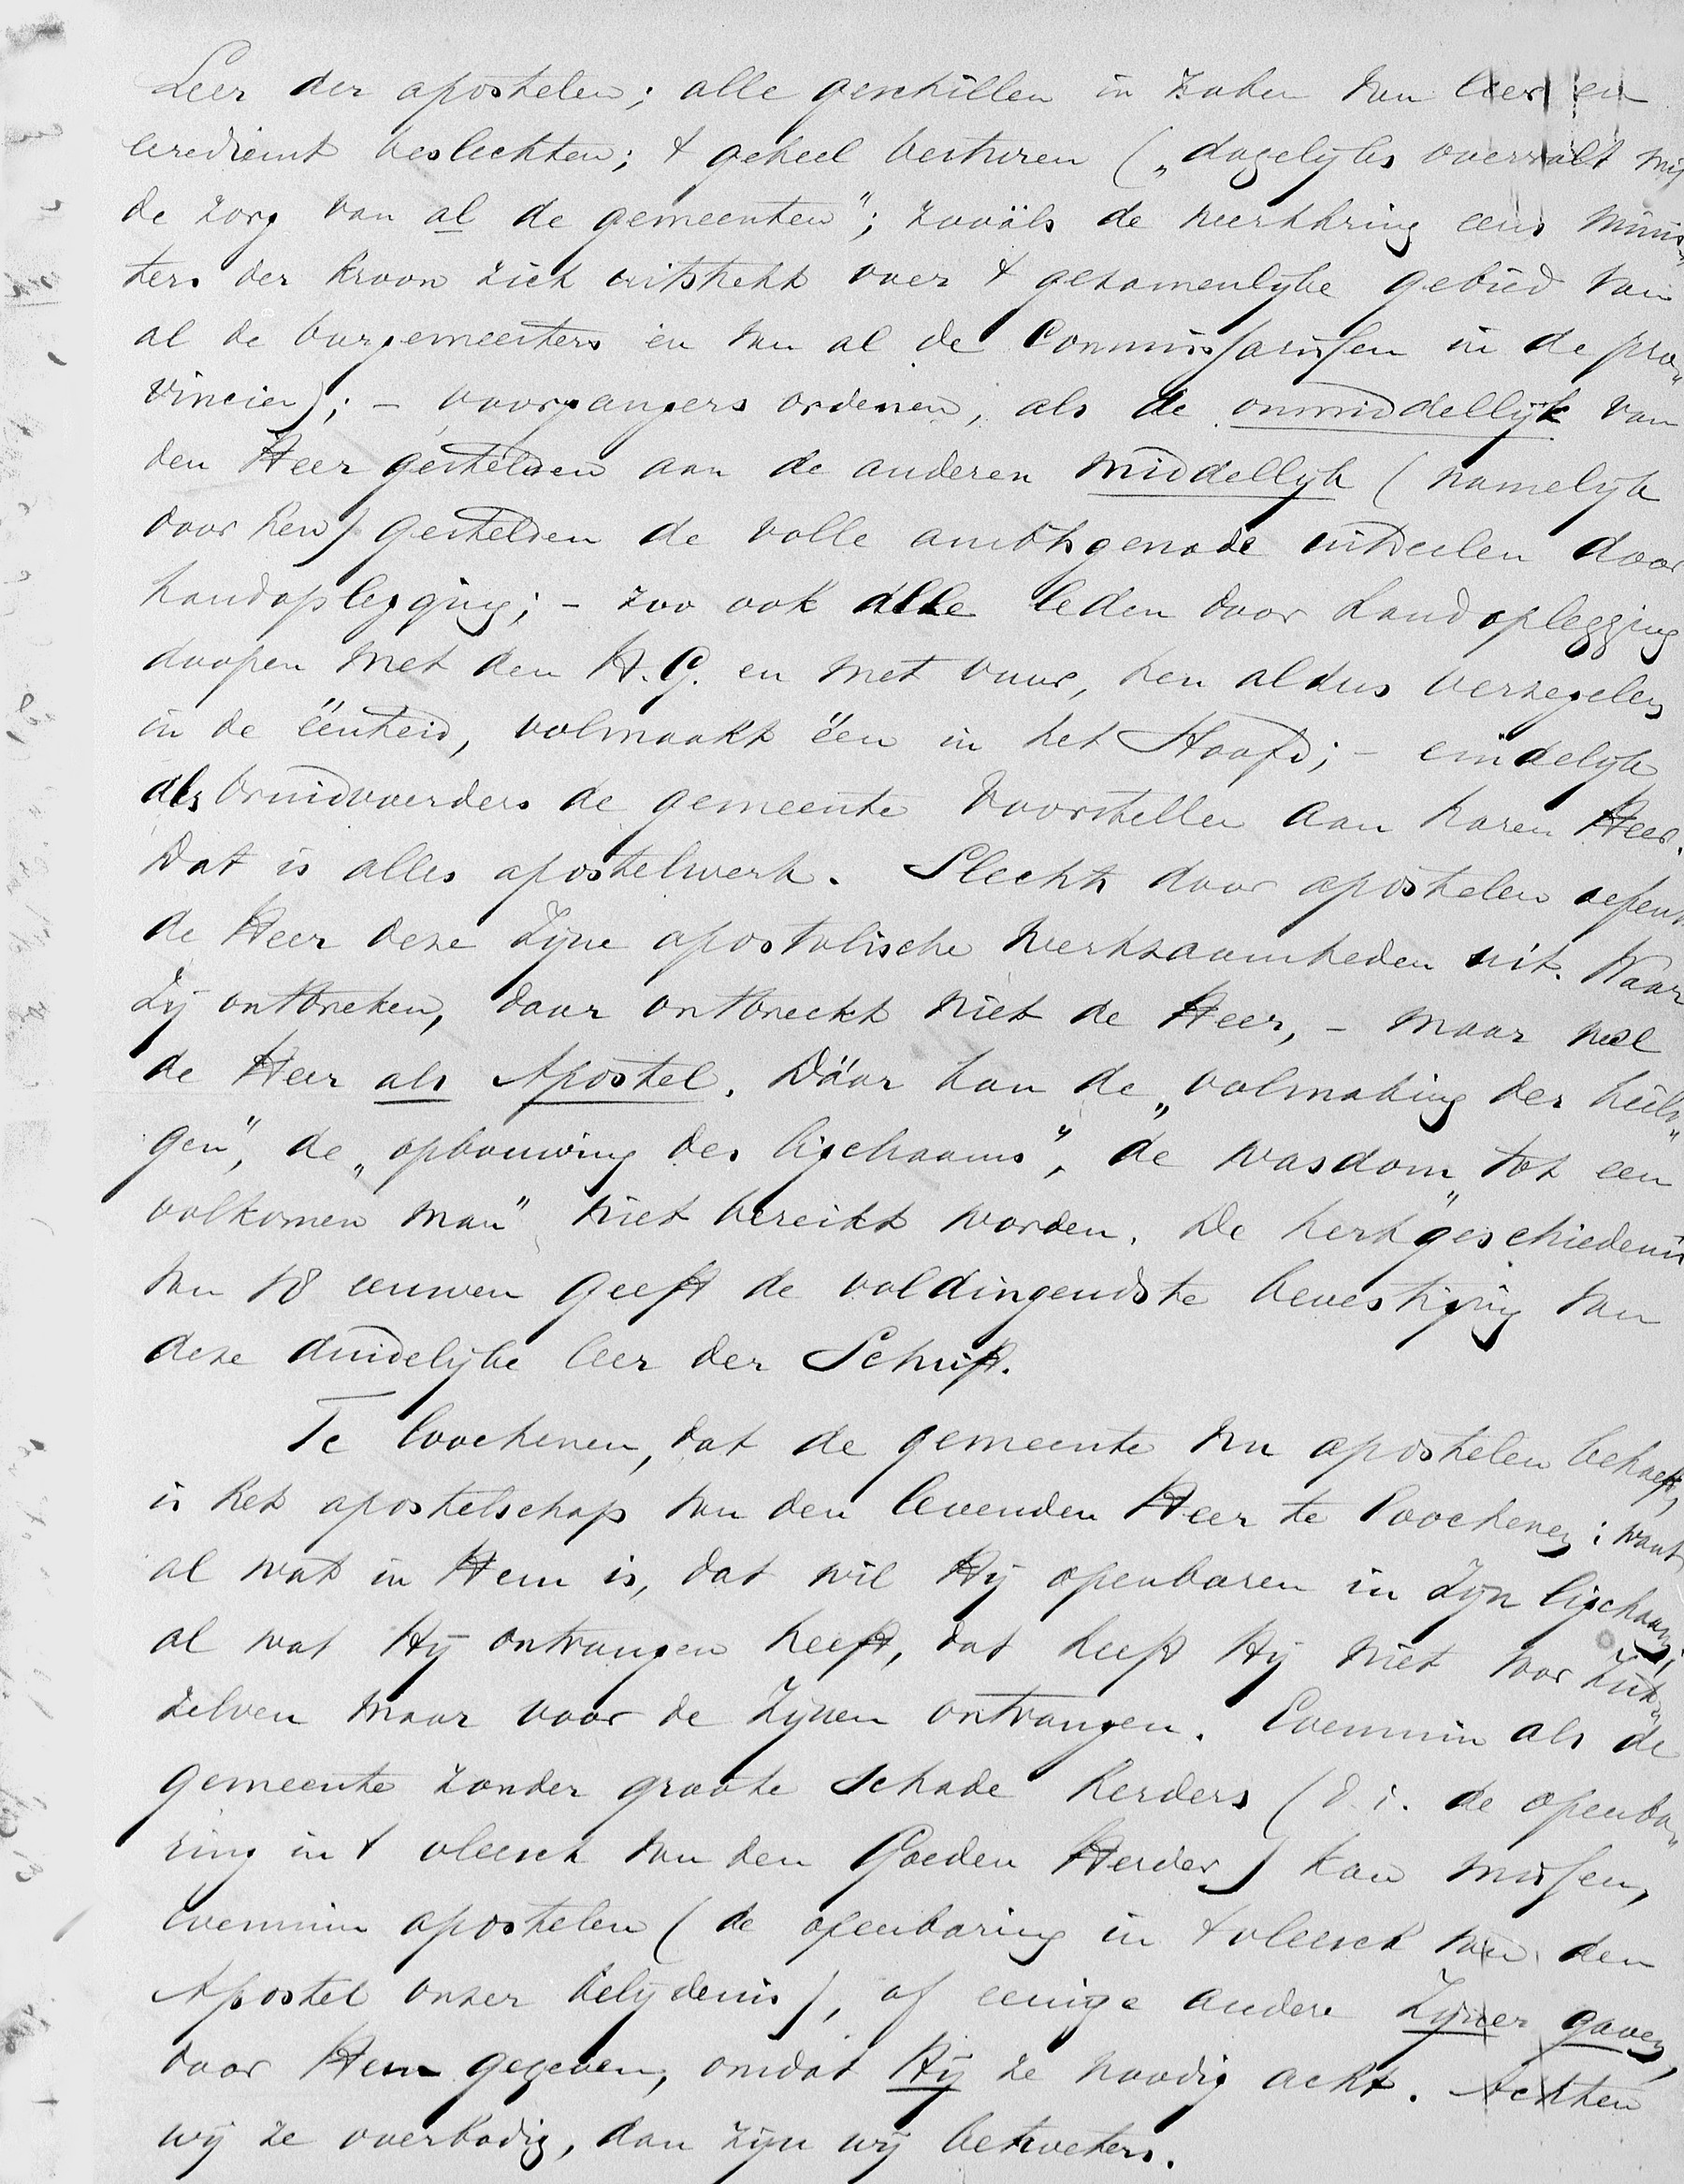 Leer der apostelen; alle geschillen in zaken van leer en
eeredienst beslechten; 't geheel besturen („dagelijks overvalt mij
de zorg van al de gemeenten"; zooäls de werkkring eens minis„
ters der kroon zich uitstrekt over 't gezamenlijke gebied van
al de burgemeesters en van al de Commissarissen in de pro„
vincien); – voorgangers ordenen, als de onmiddellijk van
den Heer gestelden aan de anderen middellijk (namelijk
door hen) gestelden de volle ambtsgenade uitdeelen door
handoplegging; – zoo ook alle leden door handoplegging
doopen met den H.G. en met vuur, hen aldus verzegelen
in de ëenheid, volmaakt ëen in het Hoofd; – eindelijk
als bruidvoerders de gemeente voorstellen aan haren Heer.
Dat is alles apostelwerk. Slechts door apostelen oefent
de Heer deze Zijne apostolische werkzaamheden uit. Waar
zij ontbreken, daar ontbreekt niet de Heer, – maar wel
de Heer als Apostel. Dáar kan de „volmaking der heili„
gen", de „opbouwing des ligchaams", de wasdom „tot een
volkomen man" niet bereikt worden. De kerkgeschiedenis
van 18 eeuwen geeft de voldingendste bevestiging van
deze duidelijke leer der Schrift.
Te loochenen, dat de gemeente nu apostelen behoeft,
is het apostelschap van den levenden Heer te loochenen; want
al wat in Hem is, dat wil Hij openbaren in Zijn ligchaam;
al wat Hij ontvangen heeft, dat heeft Hij niet voor Zich„
zelven maar voor de Zijnen ontvangen. Evenmin als de
gemeente zonder groote schade herders (d.i. de openba„
ring in 't vleesch van den Goeden Herder) kan missen,
evenmin apostelen (de openbaring in 't vleesch van den
Apostel onzer belijdenis), of eenige andere Zijner gaven,
door Hem gegeven, omdat Hij ze noodig acht. Achten
wij ze overbodig, dan zijn wij betweters.